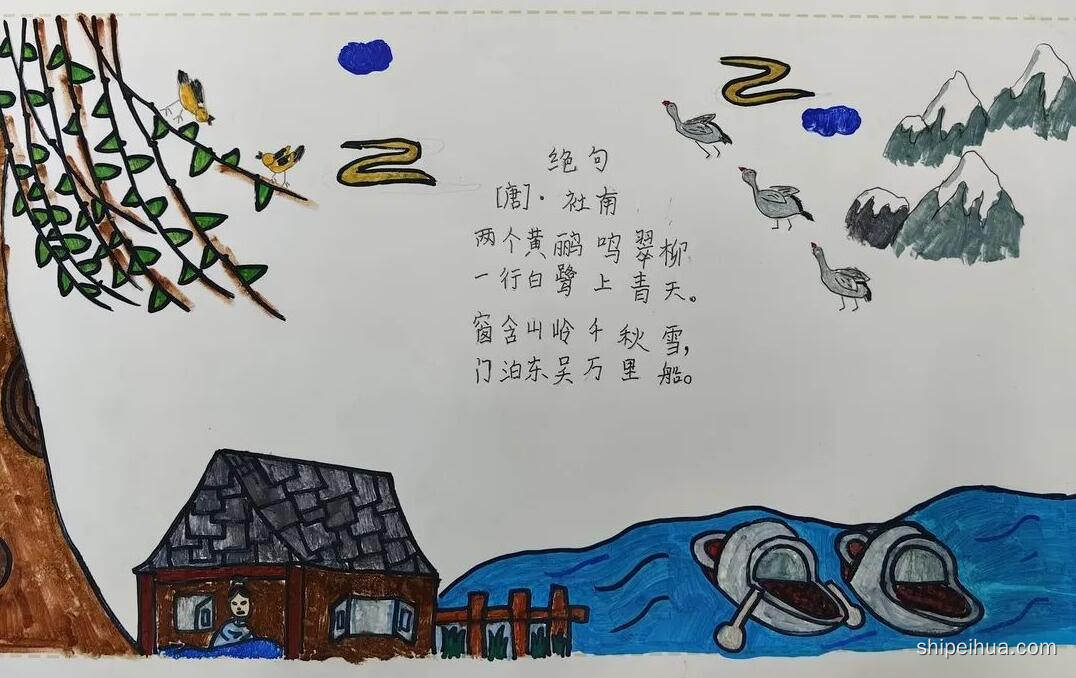 绝句
[唐]·社甫
两个黄鹂鸣翠柳
一行白鹭上青天。
窗含山岭千秋雪,
门泊东吴万里船。
shipeihua.com